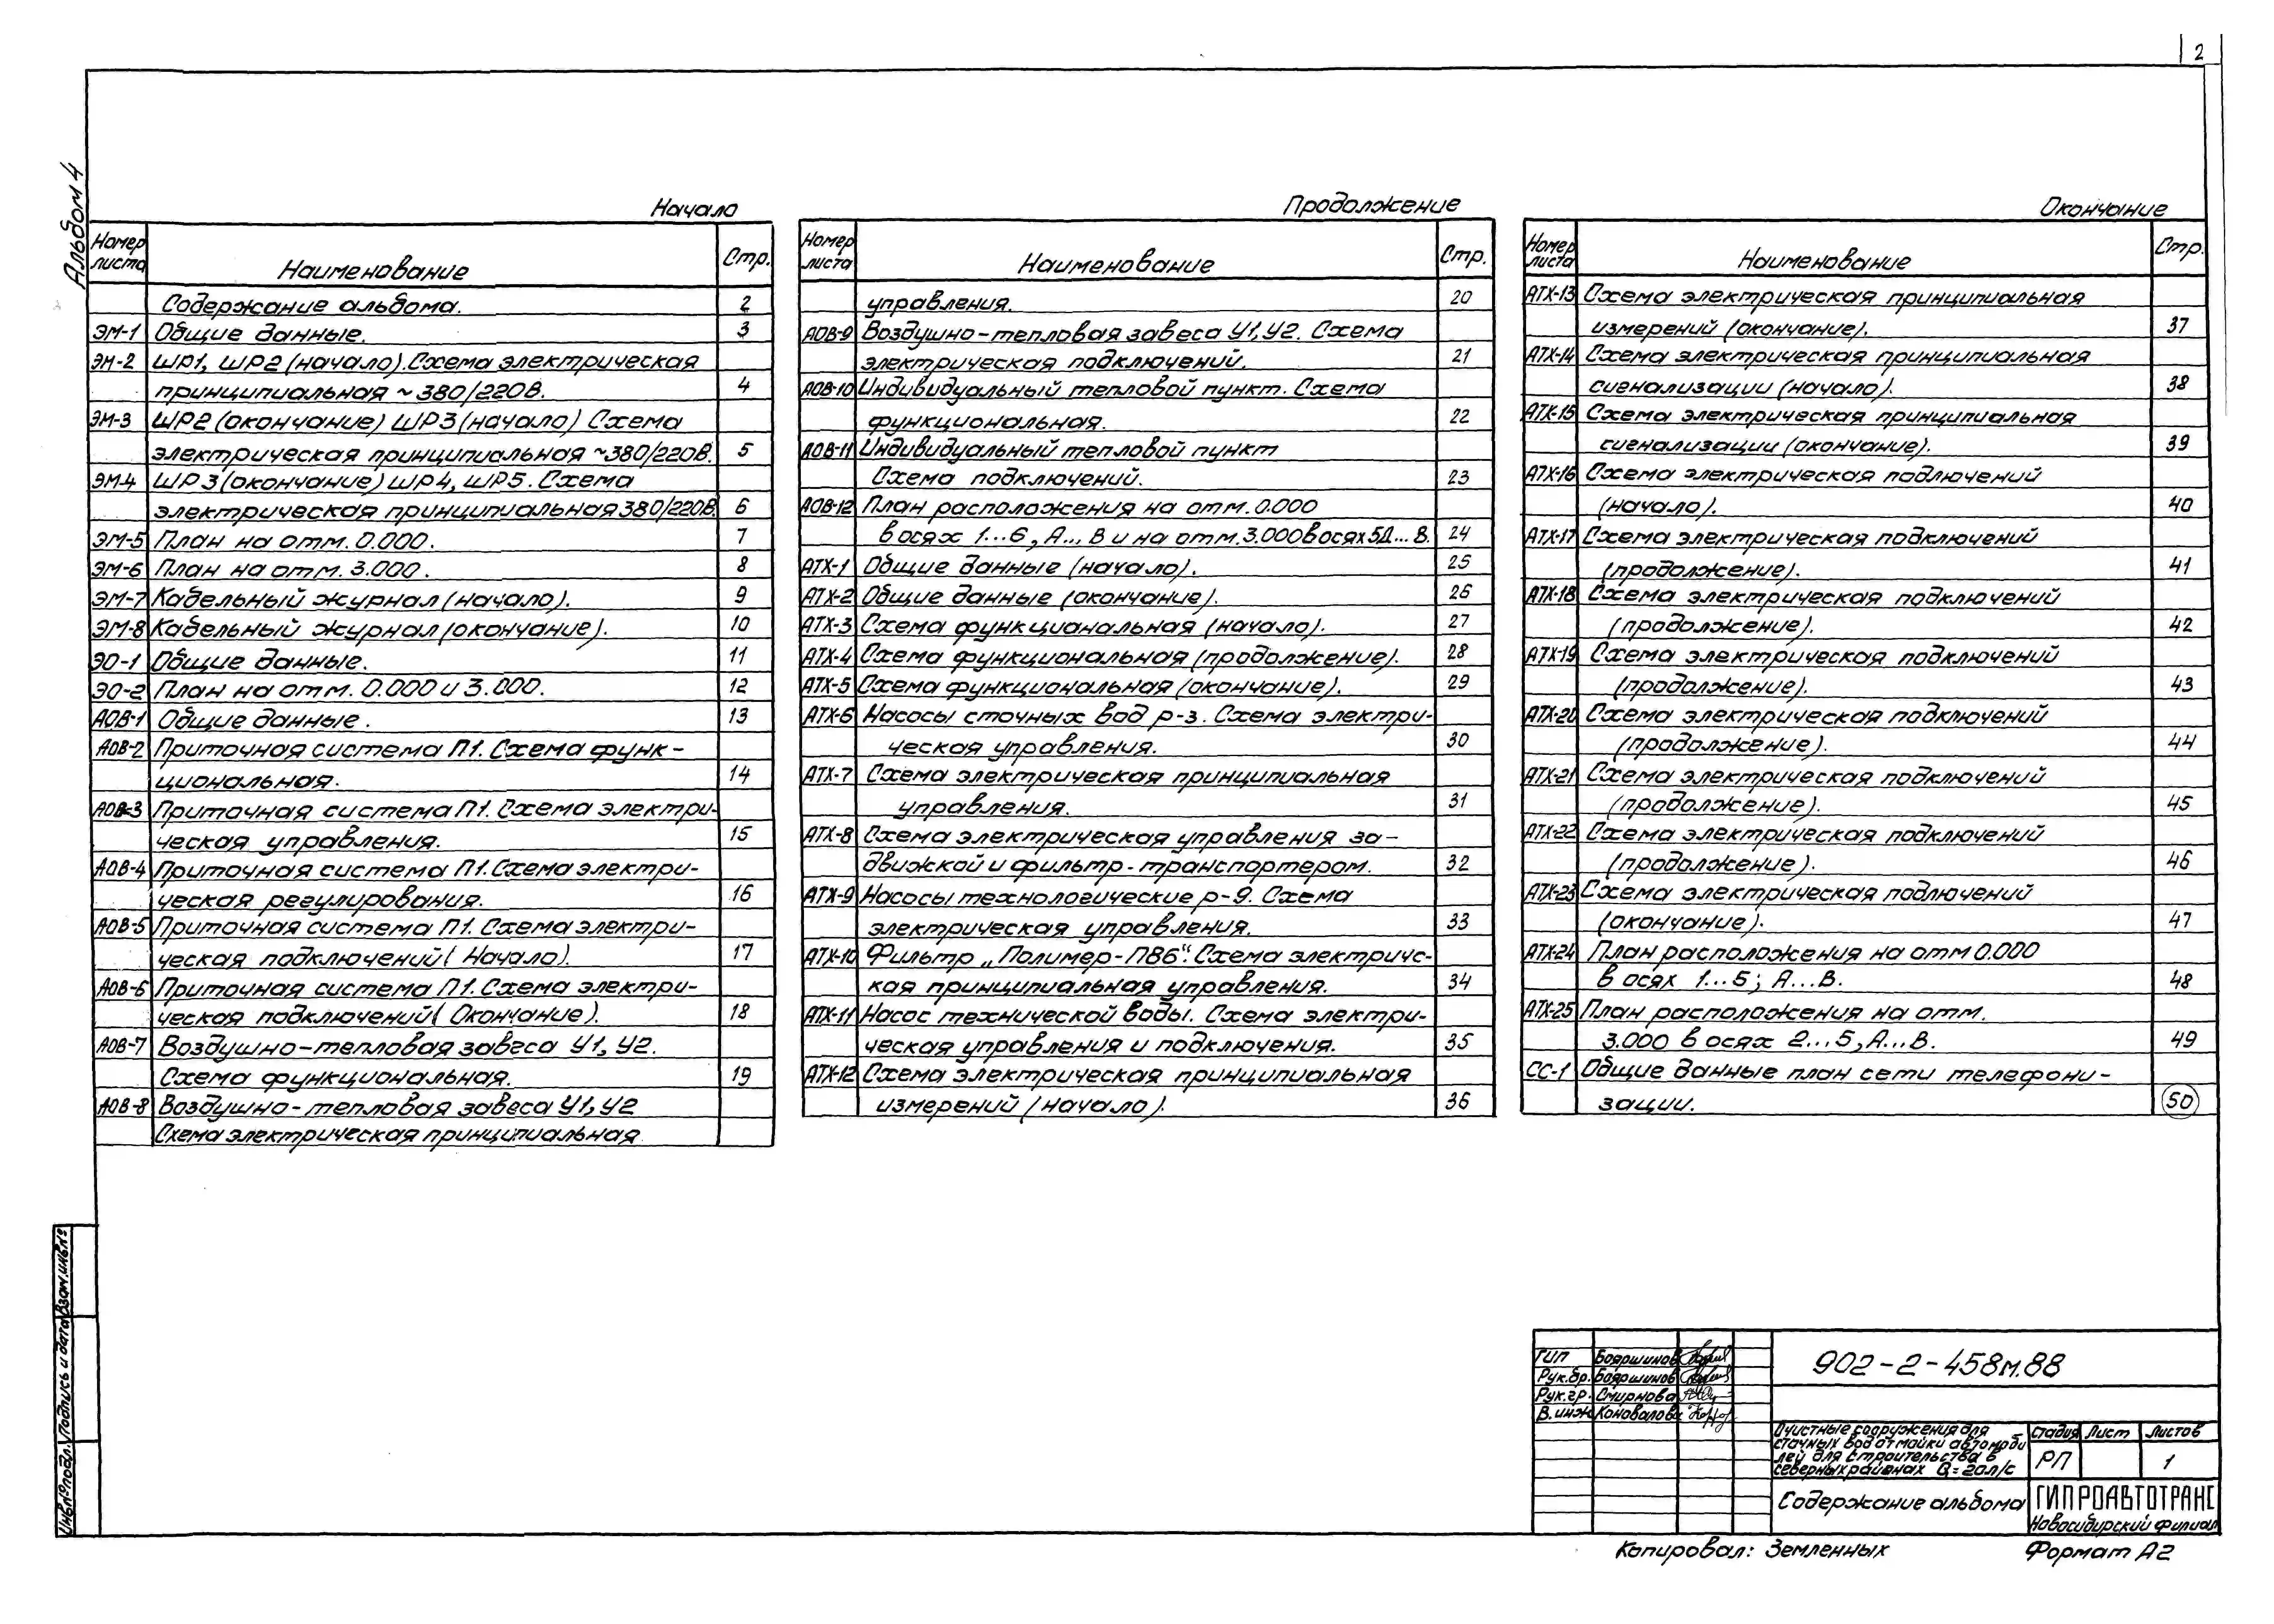 2
Альбом 4
Начало
Номер листа Наименование Стр.
Содержание альбома. 2
ЭМ-1 Общие данные. 3
ЭМ-2 ШР1, ШР2 (начало). Схема электрическая
принципиальная ~ 380/220В. 4
ЭМ-3 ШР2 (окончание) ШР3 (начало) Схема
электрическая принципиальная ~380/220В. 5
ЭМ-4 ШР3 (окончание) ШР4, ШР5. Схема
электрическая принципиальная 380/220В. 6
ЭМ-5 План на отм. 0.000. 7
ЭМ-6 План на отм. 3.000. 8
ЭМ-7 Кабельный журнал (начало). 9
ЭМ-8 Кабельный журнал (окончание). 10
ЭО-1 Общие данные. 11
ЭО-2 План на отм. 0.000 и 3.000. 12
АОВ-1 Общие данные. 13
АОВ-2 Приточная система П1. Схема функ-
циональная. 14
АОВ-3 Приточная система П1. Схема электри-
ческая управления. 15
АОВ-4 Приточная система П1. Схема электри-
ческая регулирования. 16
АОВ-5 Приточная система П1. Схема электри-
ческая подключений ( Начало). 17
АОВ-6 Приточная система П1. Схема электри-
ческая подключений ( Окончание). 18
АОВ-7 Воздушно-тепловая завеса У1, У2.
Схема функциональная. 19
АОВ-8 Воздушно-тепловая завеса У1, У2
Схема электрическая принципиальная
Продолжение
Номер листа Наименование Стр.
управления. 20
АОВ-9 Воздушно-тепловая завеса У1, У2. Схема
электрическая подключений. 21
АОВ-10 Индивидуальный тепловой пункт. Схема
функциональная. 22
АОВ-11 Индивидуальный тепловой пункт
Схема подключений. 23
АОВ-12 План расположения на отм. 0.000
в осях 1...6, А... В и на отм. 3.000 в осях 5Д... В. 24
АТХ-1 Общие данные (начало). 25
АТХ-2 Общие данные (окончание). 26
АТХ-3 Схема функциональная (начало). 27
АТХ-4 Схема функциональная (продолжение). 28
АТХ-5 Схема функциональная (окончание). 29
АТХ-6 Насосы сточных вод р-3. Схема электри-
ческая управления. 30
АТХ-7 Схема электрическая принципиальная
управления. 31
АТХ-8 Схема электрическая управления за-
движкой и фильтр-транспортером. 32
АТХ-9 Насосы технологические р-9. Схема
электрическая управления. 33
АТХ-10 Фильтр „Полимер-П86". Схема электричес-
кая принципиальная управления. 34
АТХ-11 Насос технической воды. Схема электри-
ческая управления и подключения. 35
АТХ-12 Схема электрическая принципиальная
измерений (начало). 36
Окончание
Номер листа Наименование Стр.
АТХ-13 Схема электрическая принципиальная
измерений (окончание). 37
АТХ-14 Схема электрическая принципиальная
сигнализации (начало). 38
АТХ-15 Схема электрическая принципиальная
сигнализации (окончание). 39
АТХ-16 Схема электрическая подключений
(начало). 40
АТХ-17 Схема электрическая подключений
(продолжение). 41
АТХ-18 Схема электрическая подключений
(продолжение). 42
АТХ-19 Схема электрическая подключений
(продолжение). 43
АТХ-20 Схема электрическая подключений
(продолжение). 44
АТХ-21 Схема электрическая подключений
(продолжение). 45
АТХ-22 Схема электрическая подключений
(продолжение). 46
АТХ-23 Схема электрическая подключений
(окончание). 47
АТХ-24 План расположения на отм 0.000
в осях 1...5; А...В. 48
АТХ-25 План расположения на отм.
3.000 в осях 2...5, А...В. 49
СС-1 Общие данные план сети телефони-
зации. 50
Инв.№подл. Подпись и дата Взам.инв.№
ГИП Бояршинов
Рук.бр. Бояршинов
Рук.гр. Смирнова
В.инж Коновалов
902-2-458м.88
Очистные сооружения для
сточных вод от мойки автомоби
лей для строительства в
северных районах Q=20л/с
Стадия Лист Листов
РП 1
Содержание альбома
ГИПРОАВТОТРАНС
Новосибирский филиал
Копировал: Земленных Формат А2